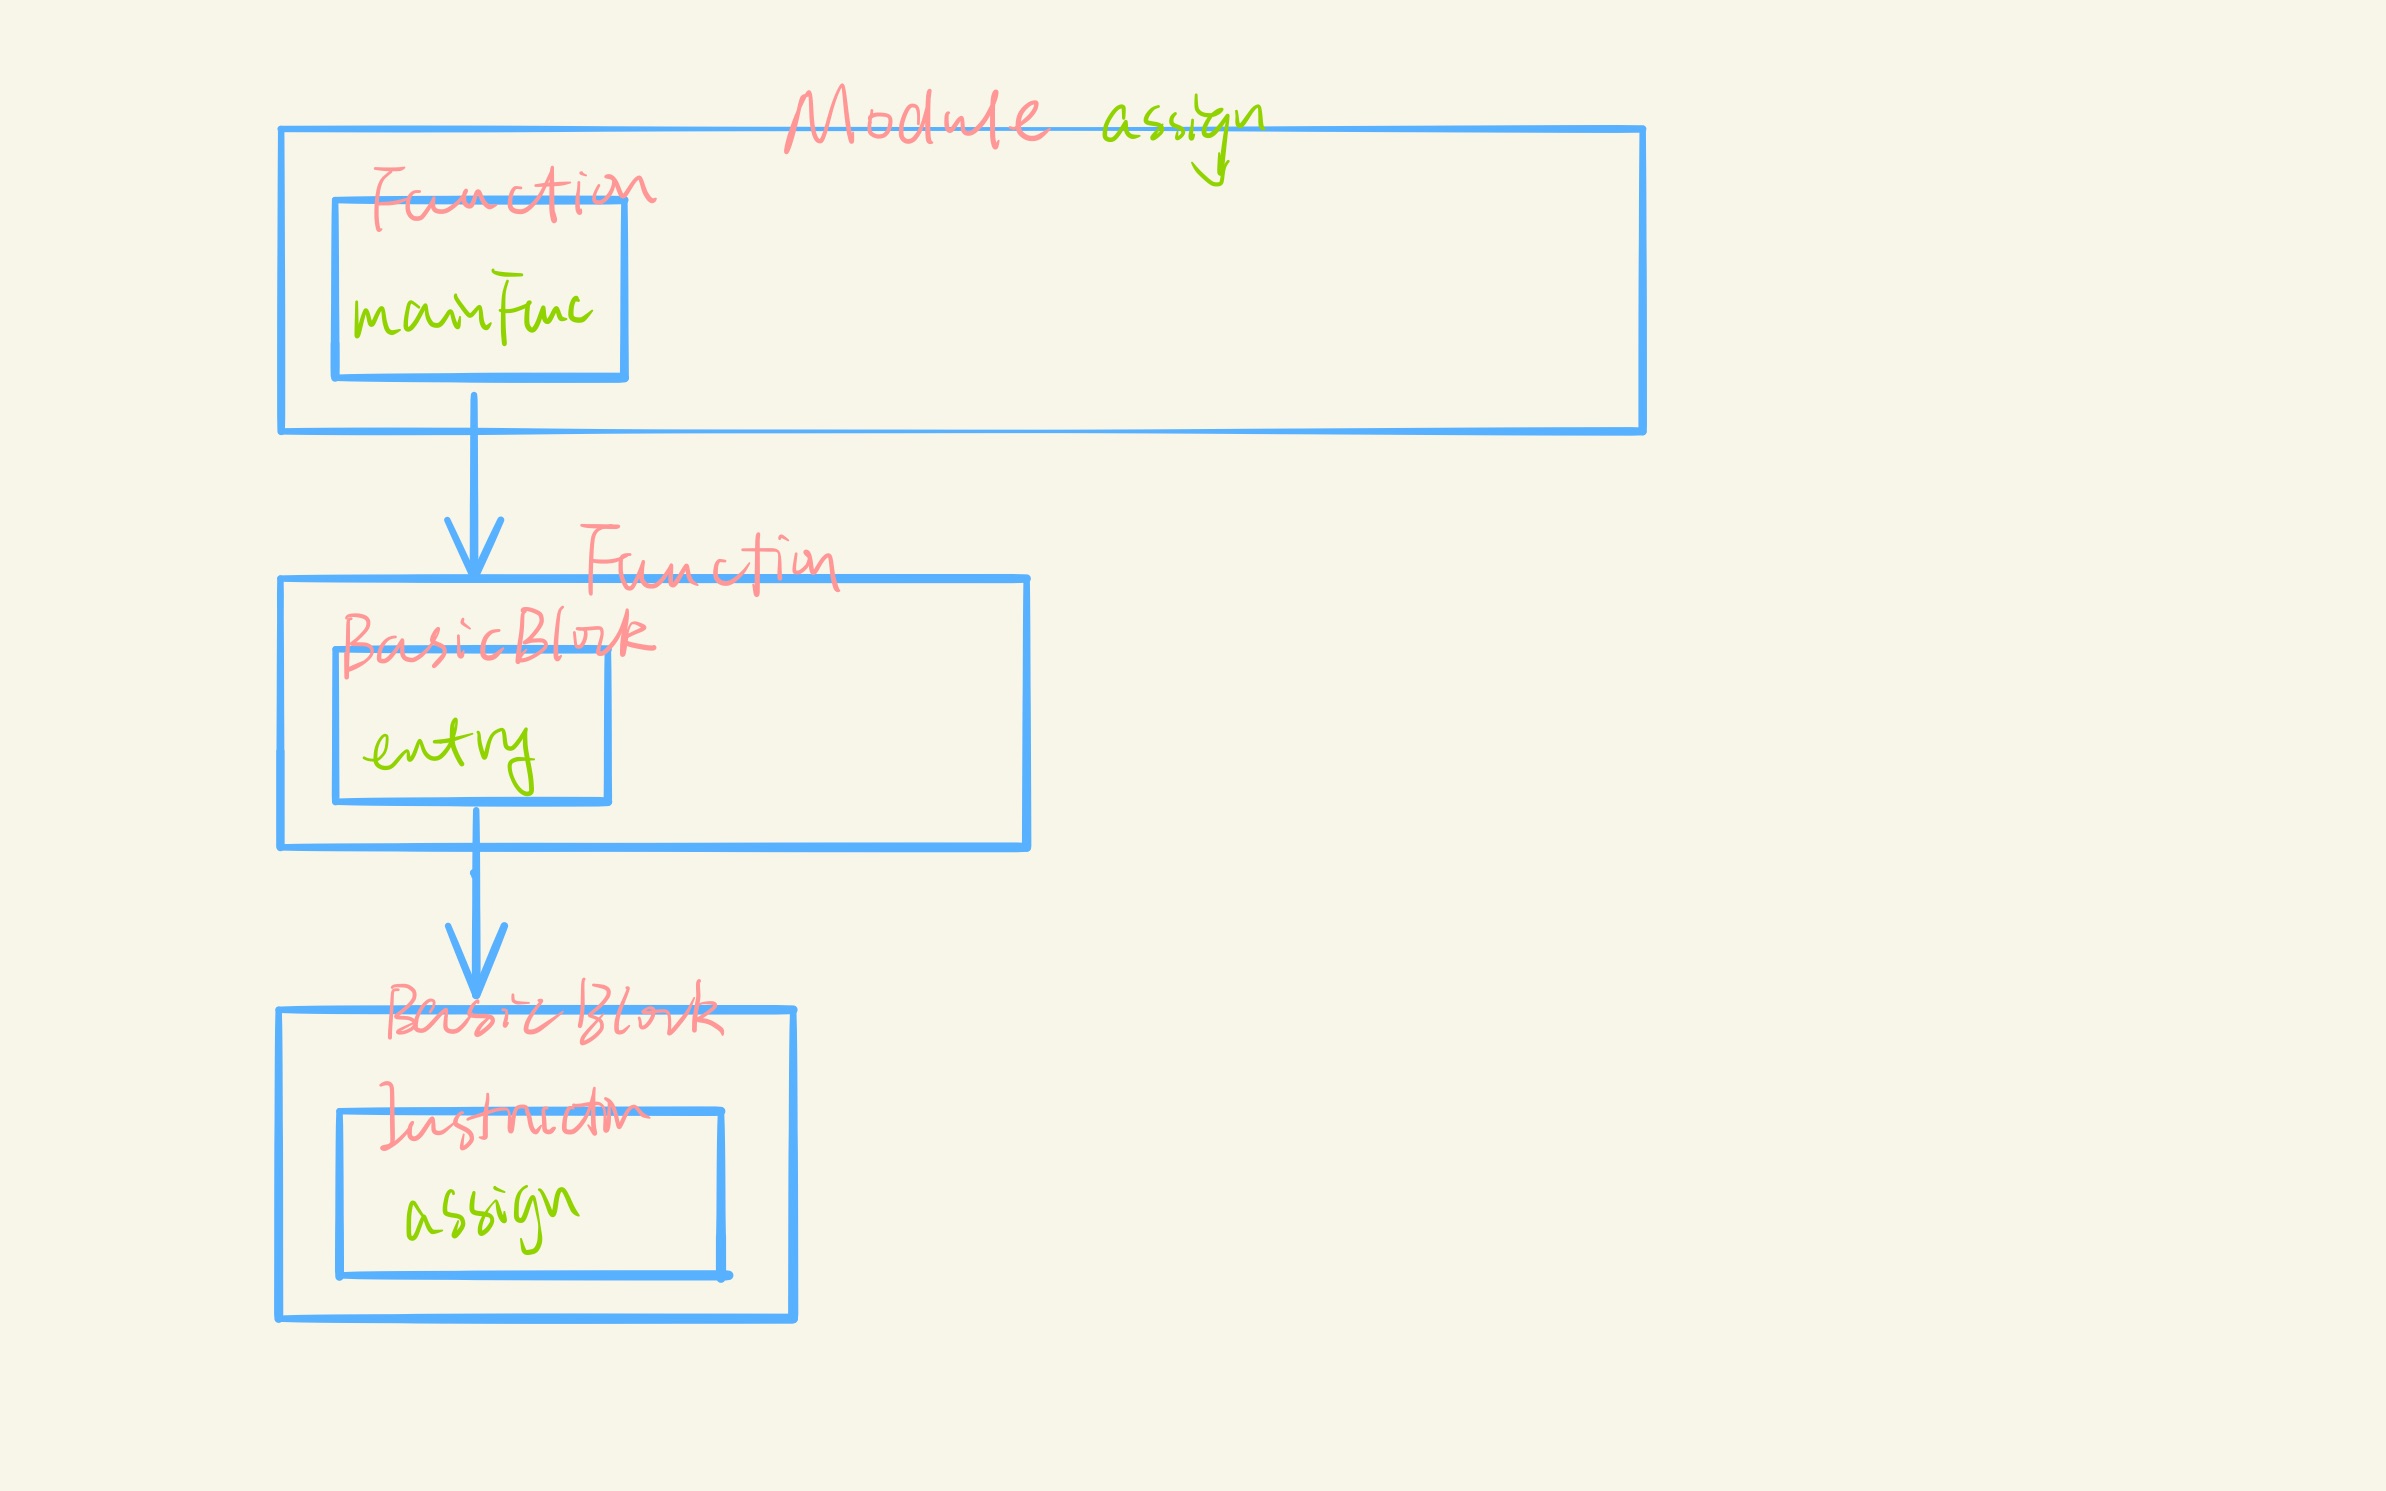 Module assign
Function
mainFunc
Function
BasicBlock
entry
BasicBlock
Instruction
assign